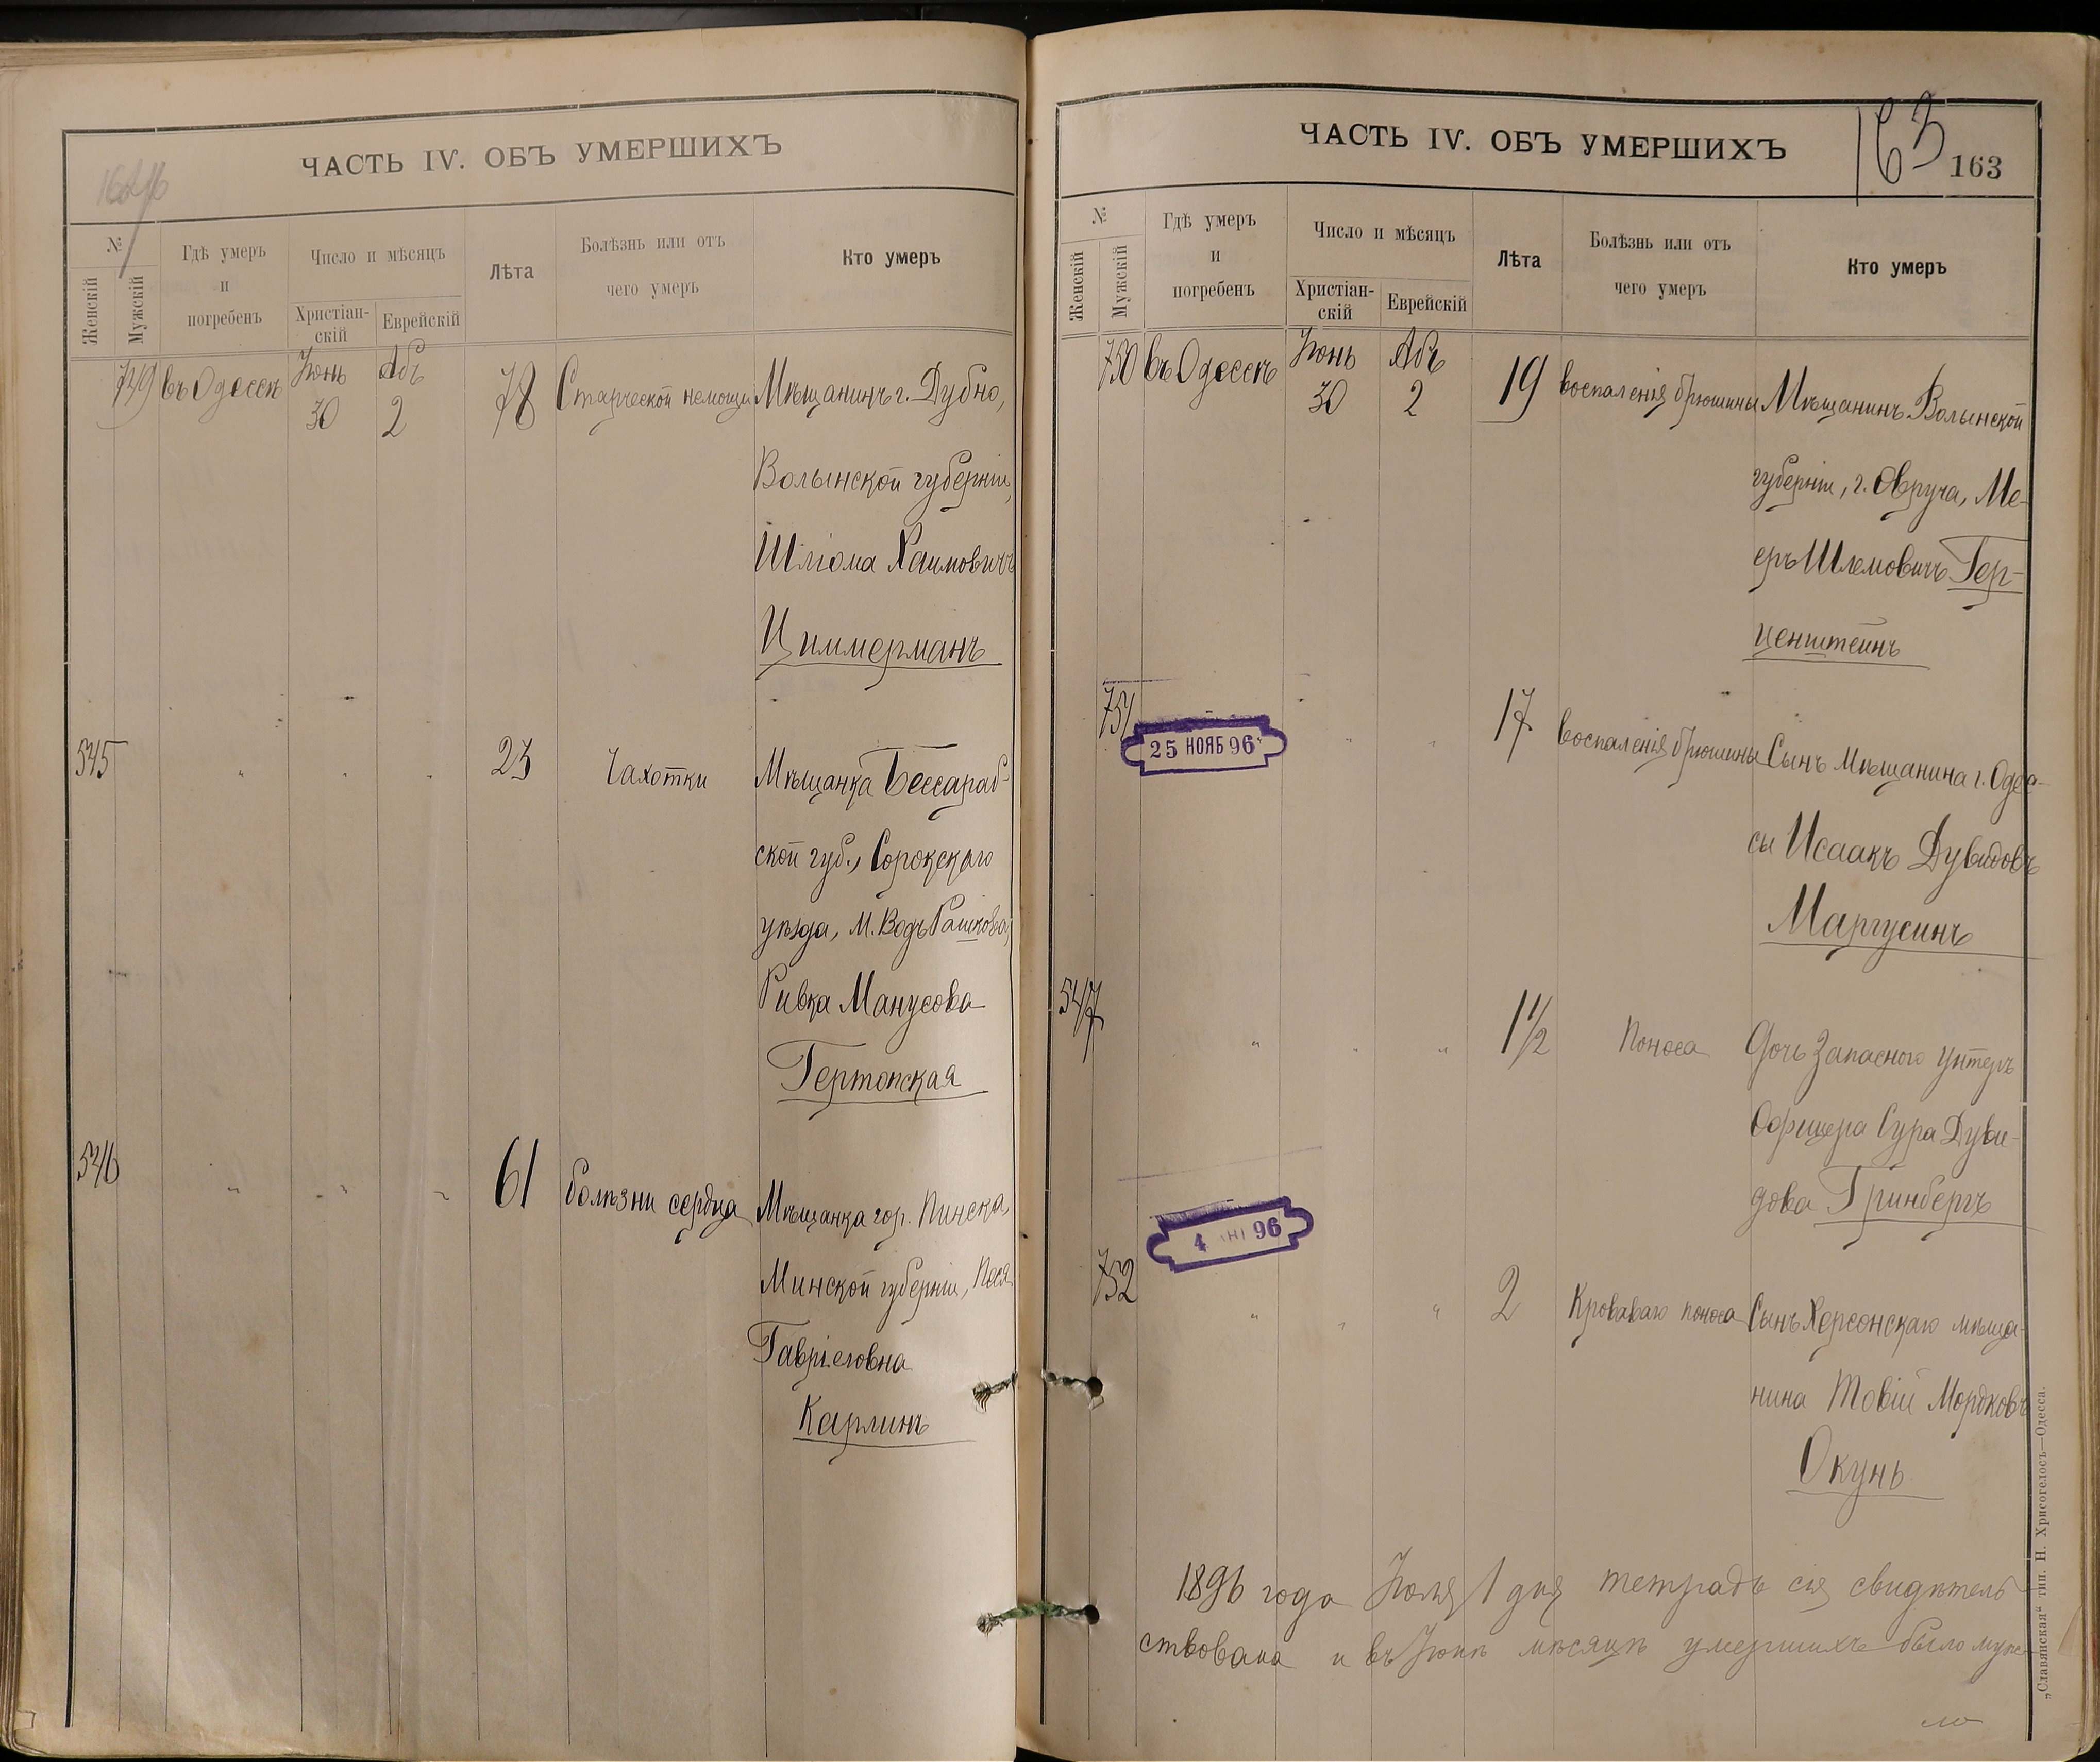 ЧАСТЬ IV. ОБЪ УМЕРШИХЪ
№
Женскій
Мужскій
Гдѣ умеръ
и
погребенъ
Число и мѣсяцъ
Христіан-
скій
Еврейскій
Лѣта
Болѣзнь или отъ
чего умеръ
Кто умеръ
749 въ Одессѣ Іюнь 30 Абъ 2 78 Старческой немощи Мѣщанинъ г. Дубно,
Волынской губерніи,
Шліома Хаимовичъ
Циммерманъ
545 " " " 23 Чахотки Мѣщанка Бессараб-
ской губ., Сорокскаго
уѣзда, м. Водъ Рашкова,
Ривка Манусова
Гертопская
546 " " " 61 болѣзни сердца Мѣщанка гор. Пинска,
Минской губерніи, Песя
Гавріеловна
Карлинъ
ЧАСТЬ IV. ОБЪ УМЕРШИХЪ
163
163
№
Женскій
Мужскій
Гдѣ умеръ
и
погребенъ
Число и мѣсяцъ
Христіан-
скій
Еврейскій
Лѣта
Болѣзнь или отъ
чего умеръ
Кто умеръ
750 въ Одессѣ Іюнь 30 Абъ 2 19 воспаленія брюшины Мѣщанинъ Волынской
губерніи, г. Овруча, Ме-
еръ Шлемовичъ Гер-
ценштейнъ
751 " " 17 воспаленія брюшины Сынъ Мѣщанина г. Одес-
25 НОЯБ 96
сы Исаакъ Дувидовъ
Маргусинъ
547 " " " 1 1/2 Поноса Дочь Запаснаго Унтеръ
Офицера Сура Дуви-
дова Гринбергъ
4 96
752 " " " 2 Кроваваго поноса Сынъ Херсонскаго мѣща-
нина Товій Мордковъ
Окунь
1896 года Іюля 1 дня тетрадь сія свидѣтель-
ствована и въ Іюнѣ мѣсяцѣ умершихъ было муж-
„Славянская“ тип. Н. Хрисогелосъ—Одесса.